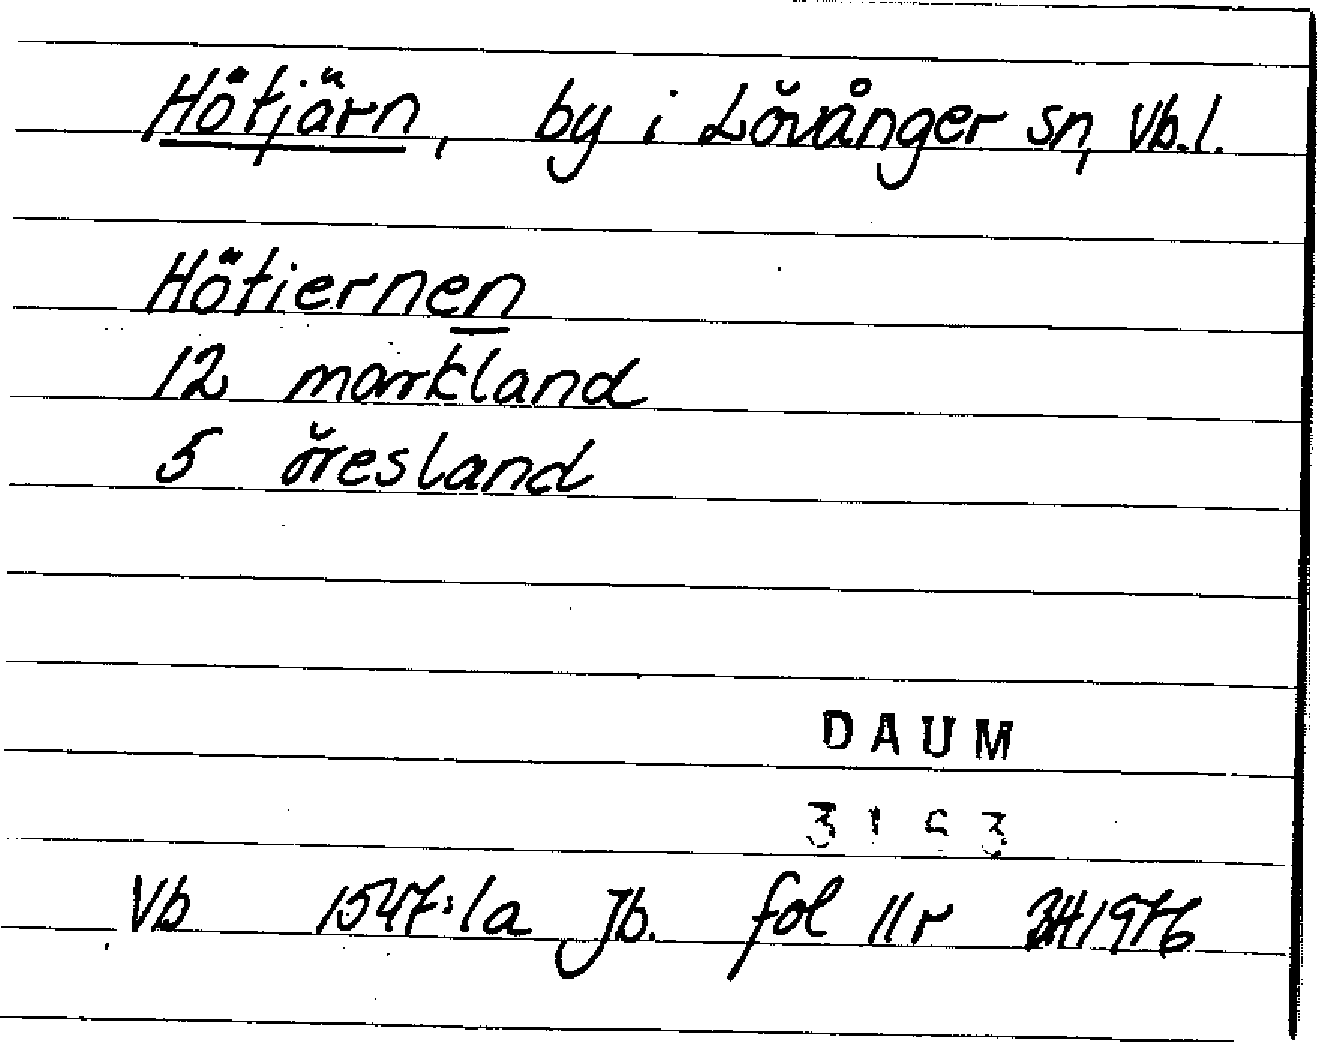 Hötjärn, by i Lövånger sn, Vb.l.
Hötiernen
12 markland
5 öresland
DAUM
Vb 1547:1a Jb. fol 11r 1976